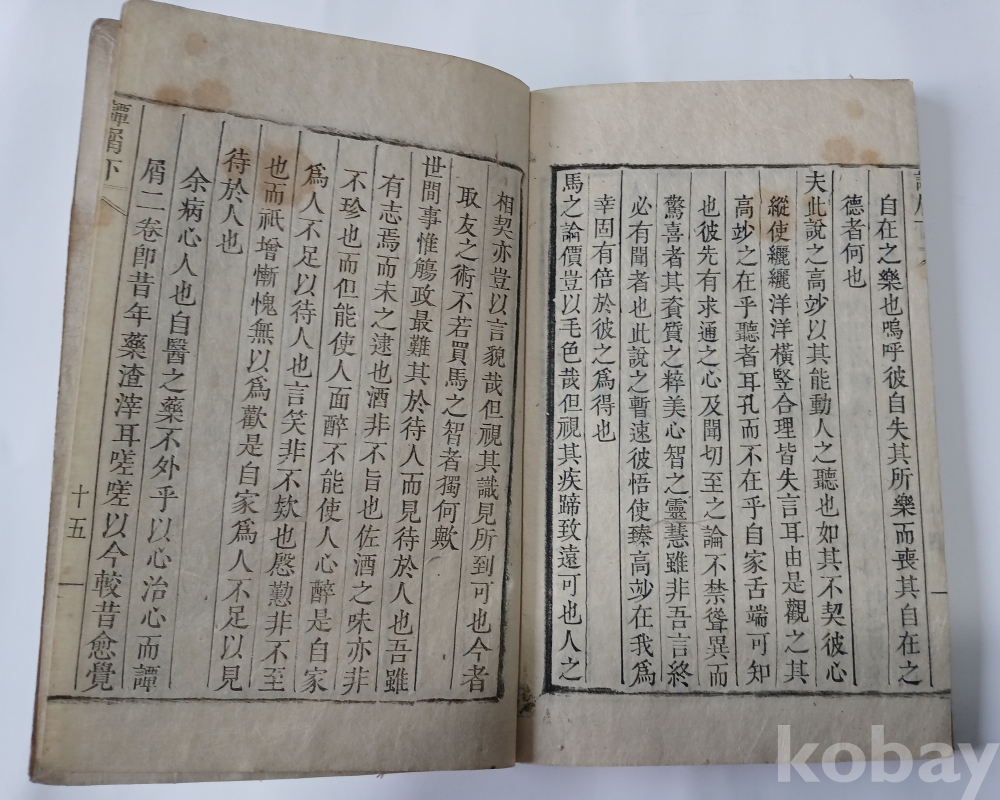 自在之樂也嗚呼彼自失其所樂而喪其自在之
德者何也
夫此說之高竗以其能動人之聽也如其不契彼心
縱使纚纚洋洋橫竪合理皆失言耳由是觀之其
高竗之在乎聽者耳孔而不在乎自家舌端可知
也彼先有求通之心及聞切至之論不禁聳異而
驚喜者其資質之粹美心智之靈慧雖非吾言終
必有聞者也此說之暫速彼悟使臻高竗在我爲
幸固有倍於彼之爲得也
馬之論價豈以毛色哉但視其疾蹄致遠可也人之
相契亦豈以言貌哉但視其識見所到可也今者
取友之術不若買馬之智者獨何歟
世間事惟觴政最難其於待人而見待於人也吾雖
有志焉而未之逮也酒非不旨也佐酒之味亦非
不珍也而但能使人面醉不能使人心醉是自家
爲人不足以待人也言笑非不欵也慇懃非不至
也而祇增慚愧無以爲歡是自家爲人不足以見
待於人也
余病心人也自醫之藥不外乎以心治心而譚
屑二卷卽昔年藥渣滓耳嗟嗟以今較昔愈覺
譚屑下
十五
kobay